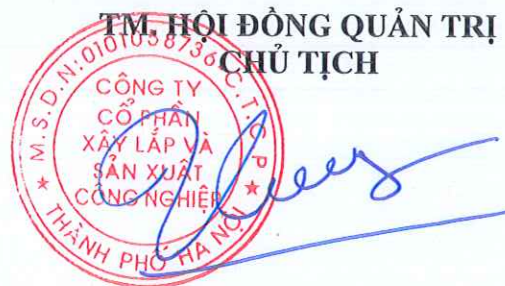 TM. HỘI ĐỒNG QUẢN TRỊ
CHỦ TỊCH
M.S.D.N:0101058736-C.T.C.P
CÔNG TY
CỔ PHẦN
XÂY LẮP VÀ
SẢN XUẤT
CÔNG NGHIỆP
★ THÀNH PHỐ HÀ NỘI ★